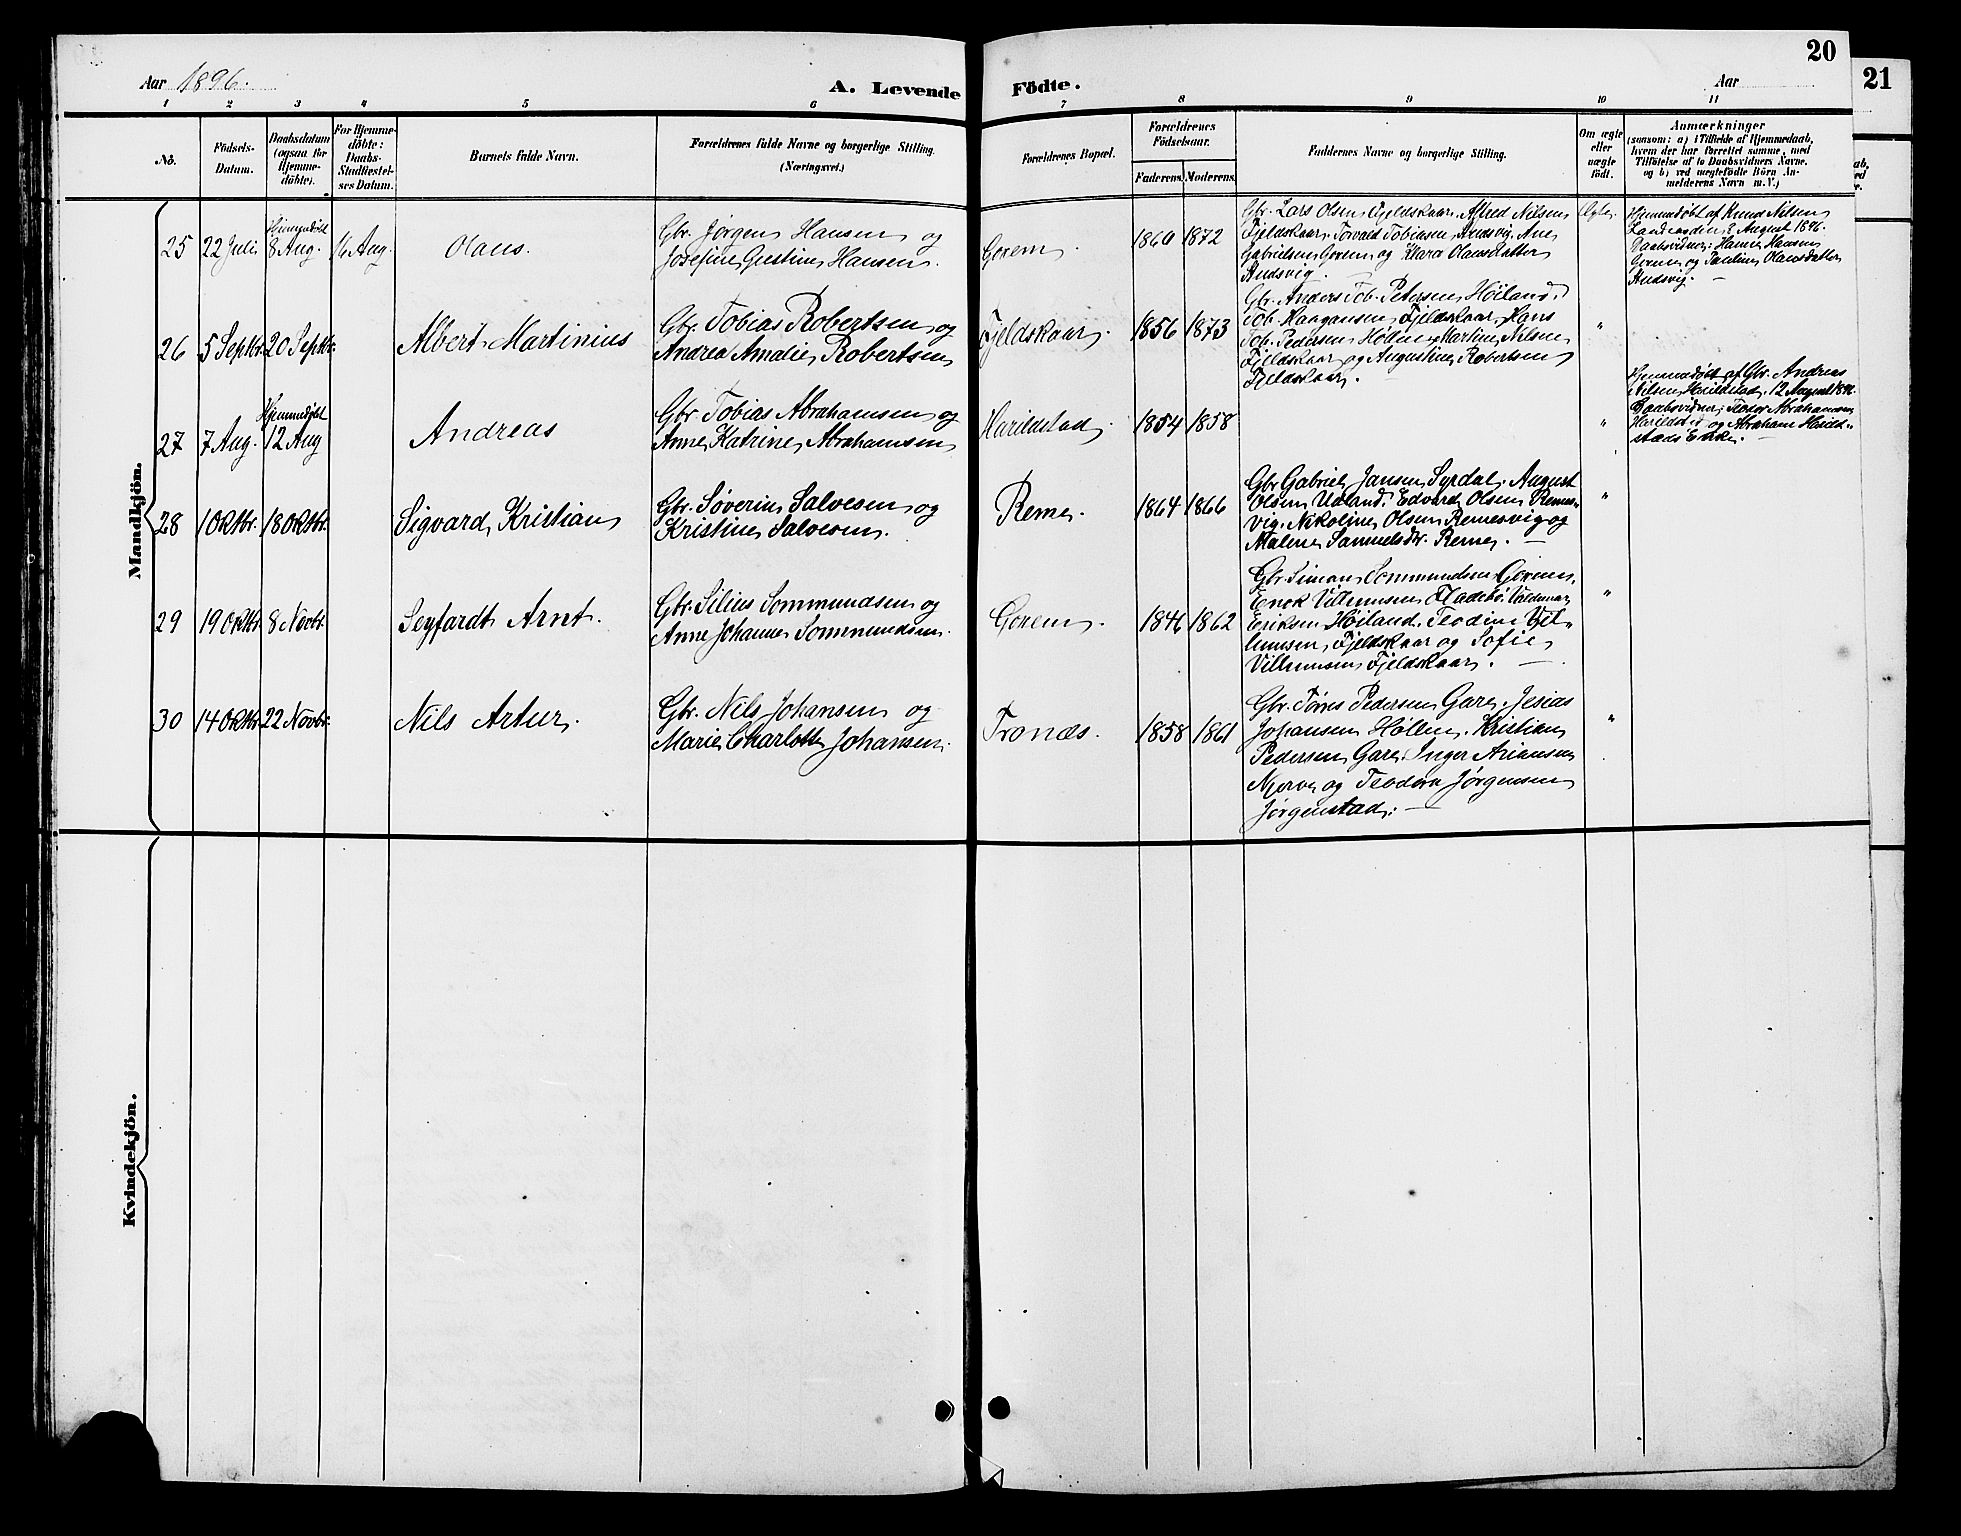 20
21
Aar 1896.
A. Levende Födte.
Aar
1 2 3 4 5 6 7 8 9 10 11
No.
Födsels-Datum.
Daabsdatum (ogsaa for Hjemme-döbte).
For Hjemme-döbte: Daabs-Stadfæstel-ses Datum.
Barnets fulde Navn.
Forældrenes fulde Navne og borgerlige Stilling.
(Næringsvei.)
Forældrenes Bopæl.
Forældrenes Födselsaar.
Faderens. Moderens.
Faddernes Navne og borgerlige Stilling.
Om ægte eller uægte födt.
Anmærkninger
(saasom: a) i Tilfælde af Hjemmedaab,
hvem der har forrettet samme, med
Tilföielse af to Daabsvidners Navne,
og b) ved uægtefödte Börn An-
melderens Navn m. V.)
Mandkjön.
25
22 Juli
Hjemmedöbt
8 Aug.
16 Aug.
Olaus.
Gbr. Jörgen Hansen og
Josefine Gustine Hansen.
Gorem.
1860 1872
Gbr. Lars Olsen Fjeldskaar, Alfred Nilsen
Fjeldskaar, Torvald Tobiasen Audsvig, Ane
Gabrielsen Gorem og Klara Olausdatter
Audsvig.
Ægte.
Hjemmedøbt af Knud Nilsen
8 August 1896.
Daabsvidner: Hansen
Gorem og Pauline Olausdatter
Audsvig. —
26
5 Septbr. 20 Septbr.
Albert Martinius
Gbr. Tobias Robertsen og
Andrea Amalie Robertsen
Fjeldskaar.
1856 1873
Gbr. Anders Tob. Petersen Höiland,
Tob. Haagansen Fjeldskaar, Hans
Tob. Pedersen Martine Nilsen
Fjeldskaar og Augustine Robertsen
Fjeldskaar. —
"
27
7 Aug.
Hjemmedøbt
12 Aug
Andreas
Gbr. Tobias Abrahamsen og
Anne Katrine Abrahamsen
Harildstad.
1854 1858
"
Hjemmedøbt af Gbr. Andreas
Nilsen Harildstad, 12 August 1896.
Daabsvidner: Teodor Abrahamsen
Harildstad og Abraham Harild-
stads Enke. —
28
1 Oktbr. 18 Oktbr.
Sigvard Kristian
Gbr. Söverin Salvesen og
Kristine Salvesen.
Reme.
1864 1866
Gbr Gabriel Jansen Syrdal, August
Olsen Udland, Edvard Olsen Remes-
vig, Nikoline Olsen Remesvig og
Malene Samuelsdtr. Reme. —
"
29
19 Oktbr. 8 Novbr.
Seyfardt Arnt.
Gbr. Silius Sommundsen og
Anne Johanne Sommundsen.
Gorem.
1846 1862
Gbr. Simon Sommundsen Gorem,
Enok Villumsen Fladebö, Valdemar
Eriksen Höiland, Teodine Vil-
lumsen, Fjeldskaar og Sofie
Villumsen Fjeldskaar. —
"
30
14 Oktbr. 22 Novbr.
Nils Artur.
Gbr. Nils Johansen og
Marie Charlotte Johansen.
Tronæs.
1858 1861
Gbr. Tönnes Pedersen Gare, Jesias
Johansen Höllen, Kristian
Pedersen Gare, Inger Ariansen
Njerve og Teodora Jörgensen
Jörgenstad. —
"
Kvindekjön.